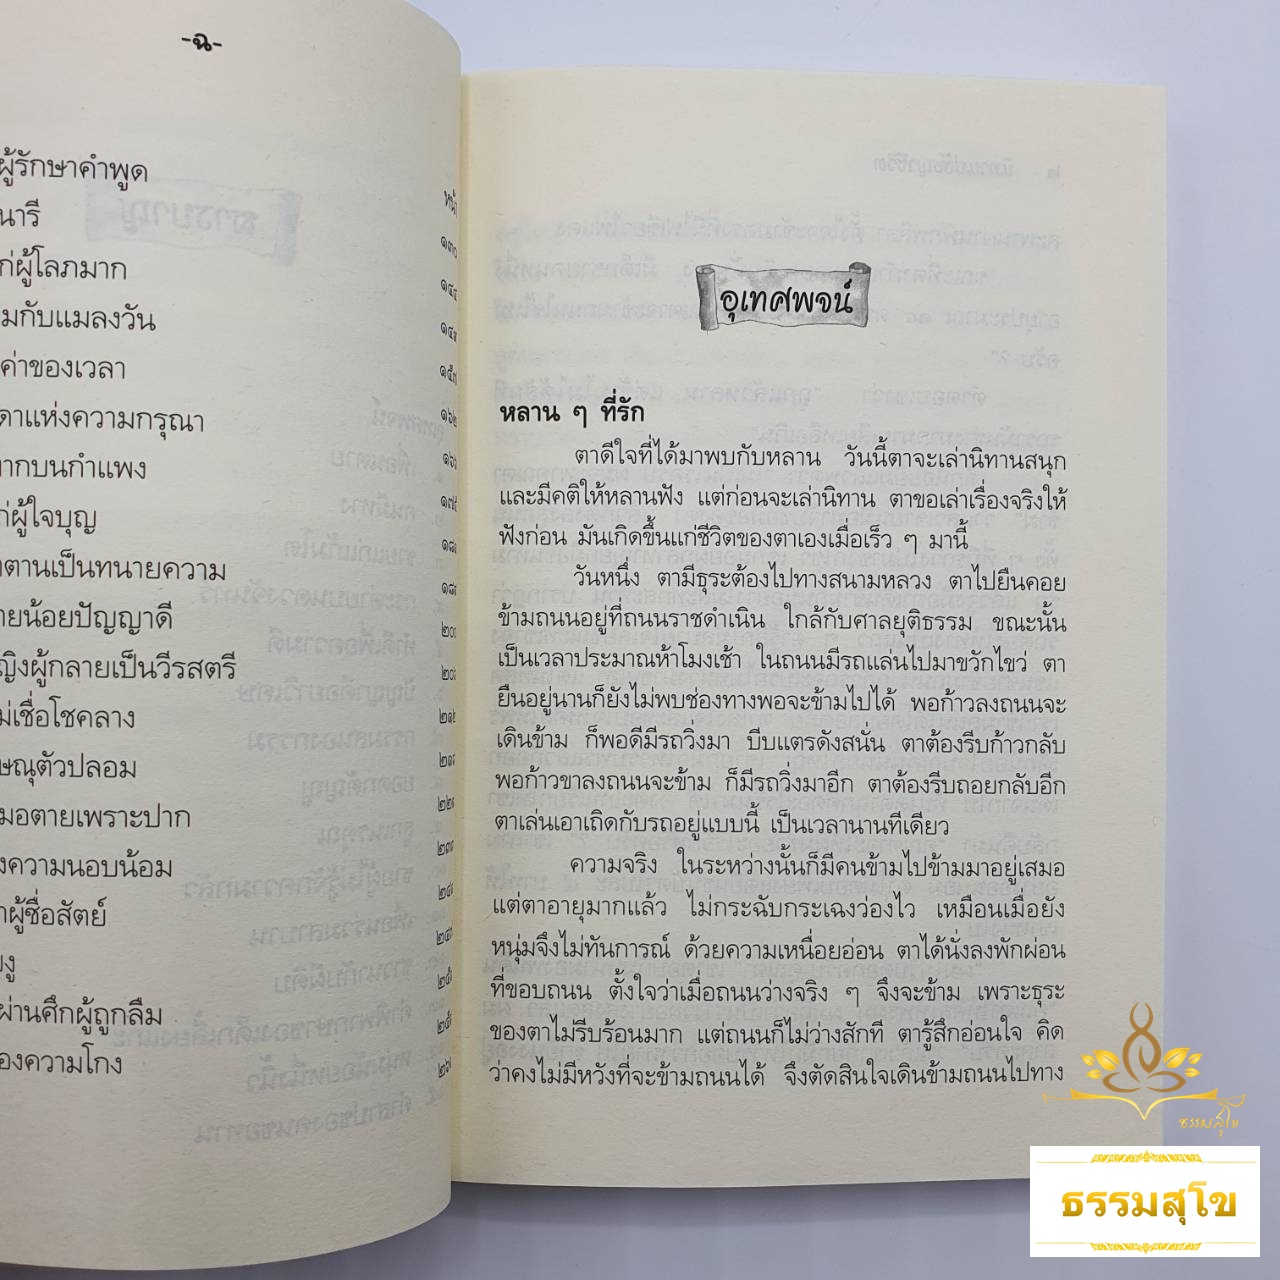 -ฉ-
ผู้รักษาคำพูด
นารี
ผู้โลภมาก
กับแมลงวัน
ค่าของเวลา
แห่งความกรุณา
บนกำแพง
ผู้ใจบุญ
เป็นทนายความ
น้อยปัญญาดี
ผู้กลายเป็นวีรสตรี
เชื่อโชคลาง
ตัวปลอม
ตายเพราะปาก
ความนอบน้อม
ผู้ซื่อสัตย์
งู
ผ่านศึกผู้ถูกลืม
ของความโกง
อุเทศพจน์
หลาน ๆ ที่รัก
ตาดีใจที่ได้มาพบกับหลาน วันนี้ตาจะเล่านิทานสนุก
และมีคติให้หลานฟัง แต่ก่อนจะเล่านิทาน ตาขอเล่าเรื่องจริงให้
ฟังก่อน มันเกิดขึ้นแก่ชีวิตของตาเองเมื่อเร็ว ๆ มานี้
วันหนึ่ง ตามีธุระต้องไปทางสนามหลวง ตาไปยืนคอย
ข้ามถนนอยู่ที่ถนนราชดำเนิน ใกล้กับศาลยุติธรรม ขณะนั้น
เป็นเวลาประมาณห้าโมงเช้า ในถนนมีรถแล่นไปมาขวักไขว่ ตา
ยืนอยู่นานก็ยังไม่พบช่องทางพอจะข้ามไปได้ พอก้าวลงถนนจะ
เดินข้าม ก็พอดีมีรถวิ่งมา บีบแตรดังสนั่น ตาต้องรีบก้าวกลับ
พอก้าวขาลงถนนจะข้าม ก็มีรถวิ่งมาอีก ตาต้องรีบถอยกลับอีก
ตาเล่นเอาเถิดกับรถอยู่แบบนี้ เป็นเวลานานทีเดียว
ความจริง ในระหว่างนั้นก็มีคนข้ามไปข้ามมาอยู่เสมอ
แต่ตาอายุมากแล้ว ไม่กระฉับกระเฉงว่องไว เหมือนเมื่อยัง
หนุ่มจึงไม่ทันการณ์ ด้วยความเหนื่อยอ่อน ตาได้นั่งลงพักผ่อน
ที่ขอบถนน ตั้งใจว่าเมื่อถนนว่างจริง ๆ จึงจะข้าม เพราะธุระ
ของตาไม่รีบร้อนมาก แต่ถนนก็ไม่ว่างสักที ตารู้สึกอ่อนใจ คิด
ว่าคงไม่มีหวังที่จะข้ามถนนได้ จึงตัดสินใจเดินข้ามถนนไปทาง
ธรรมสุโข
ธรรมสุโข